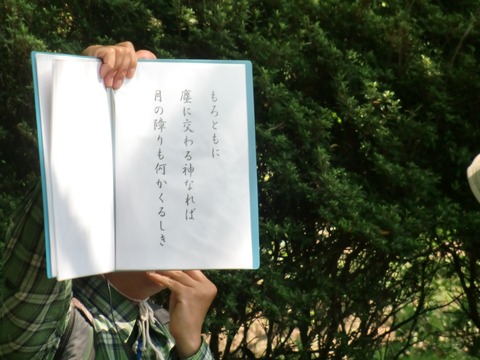 もろともに
塵に交わる神なれば
月の障りも何かくるしき